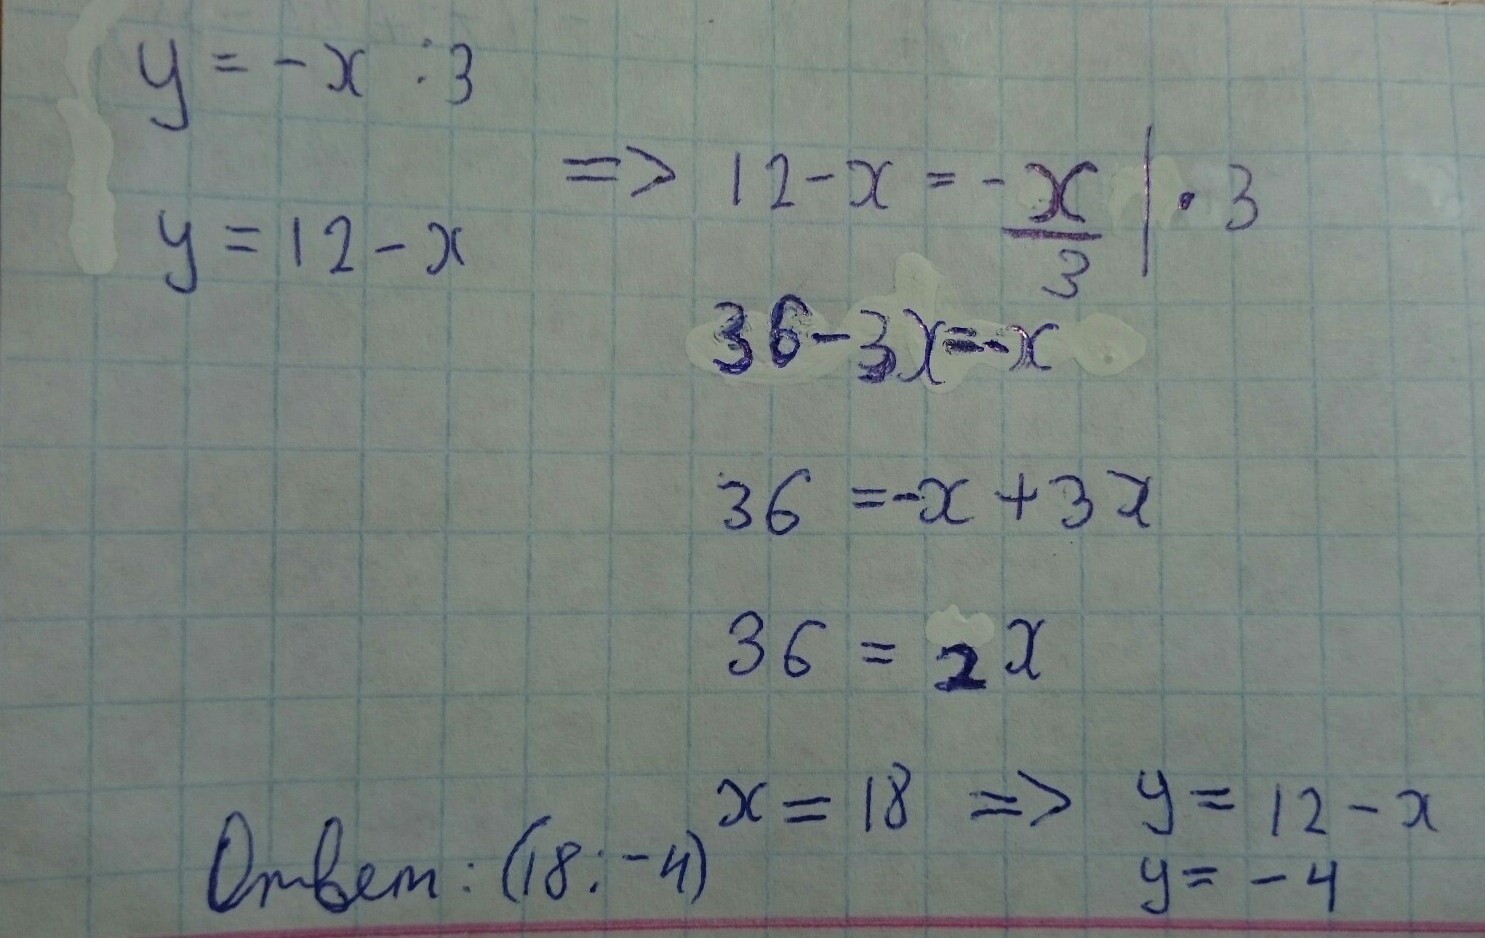 y = -x : 3
y = 12 - x
=> 12 - x = - x/3 | · 3
36 - 3x = -x
36 = -x + 3x
36 = 2x
x = 18 => y = 12 - x
y = -4
Ответ: (18; -4)